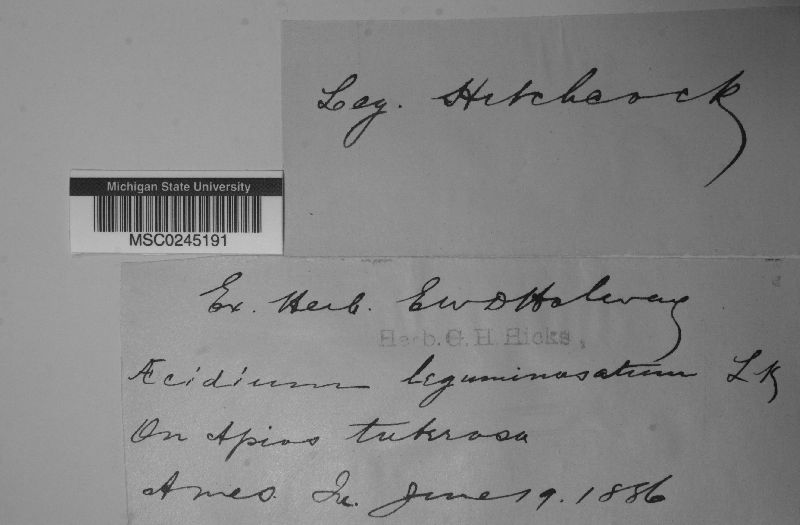 Leg. Hitchcock
Michigan State University
MSC0245191
Ex. Herb. E W D Holway
Herb. G. H. Hicks,
Æcidium leguminosatum Lk
On Apios tuberosa
Ames. Ia. June 19. 1886